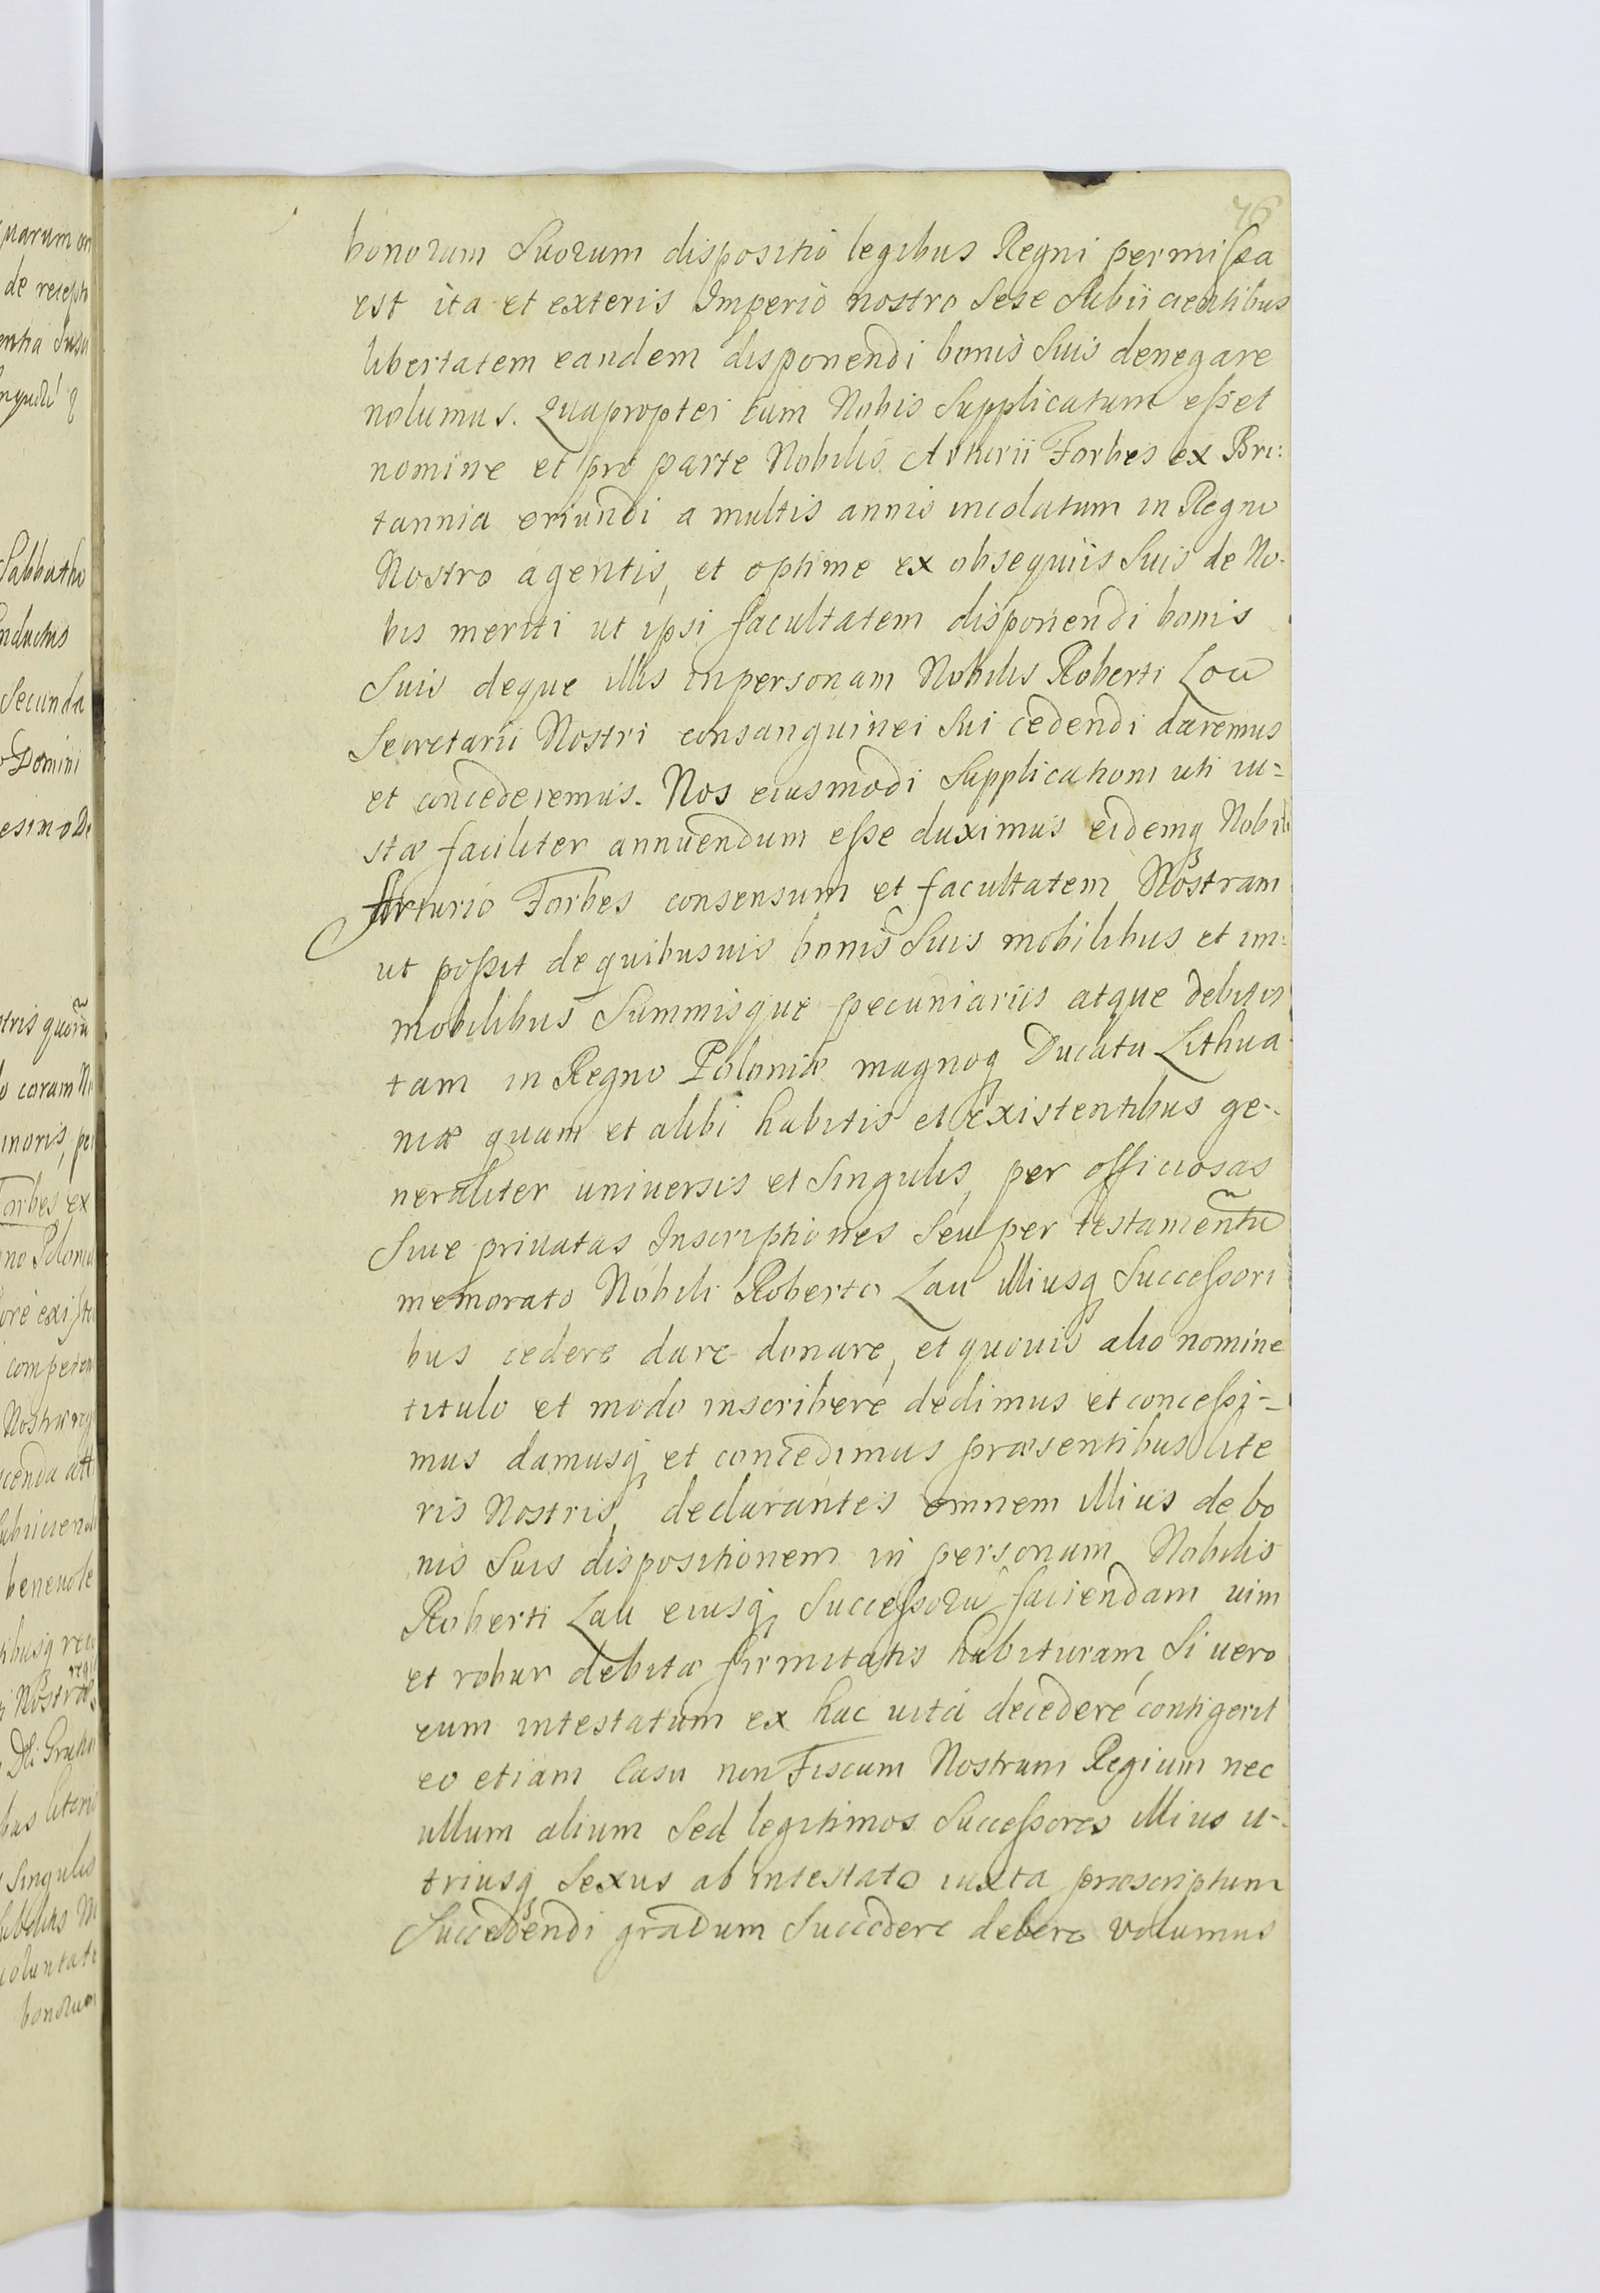 76
bonorum Suorum dispositio legibus Regni permissa
est ita et exteris Imperio nostro Sese Subiicientibus
libertatem eandem disponendi bonis Suis denegare
nolumus. Quapropter cum Nobis Supplicatum esset
nomine et pro parte Nobilis Arturii Forbes ex Bri:
tannia oriundi a multis annis incolatum in Regno
Nostro agentis, et optime ex obsequiis Suis de No-
bis meriti ut ipsi facultatem disponendi bonis
Suis deque illis inpersonam Nobilis Roberti Lou
Secretarii Nostri consanguinei Sui cedendi daremus
et concederemus. Nos eiusmodi Supplicationi uti iu=
stæ faciliter annuendum esse duximus eidemq Nobili
Arturio Forbes consensum et facultatem Nostram
ut possit de quibusuis bonis Suis mobilibus et im:
mobilibus Summisque pecuniariis atque debitis
tam in Regno Poloniæ magnoq Ducatu Lithua-
niæ quam et alibi habitis et existentibus ge-
neraliter uniuersis et Singulis, per officiosas
Siue priuatas Inscriptiones Seu per testamentũ
memorato Nobili Roberto Lau illiusq Successori
bus cedere dare donare, et quouis alio nomine
titulo et modo inscribere dedimus et concessi=
mus damusq et concedimus præsentibus lite
ris Nostris, declarantes omnem illius de bo
nis Suis dispositionem in personam Nobilis
Roberti Lau eiusq Successorũ faciendam uim
et robur debitæ firmitatis habituram Si uero
eum intestatum ex hac uita decedere contigerit
eo etiam Casu non Fiscum Nostrum Regium nec
ullum alium Sed legitimos Successores illius u-
triusq Sexus ab intestato iuxta præscriptum
Succedendi gradum Succedere debere volumus